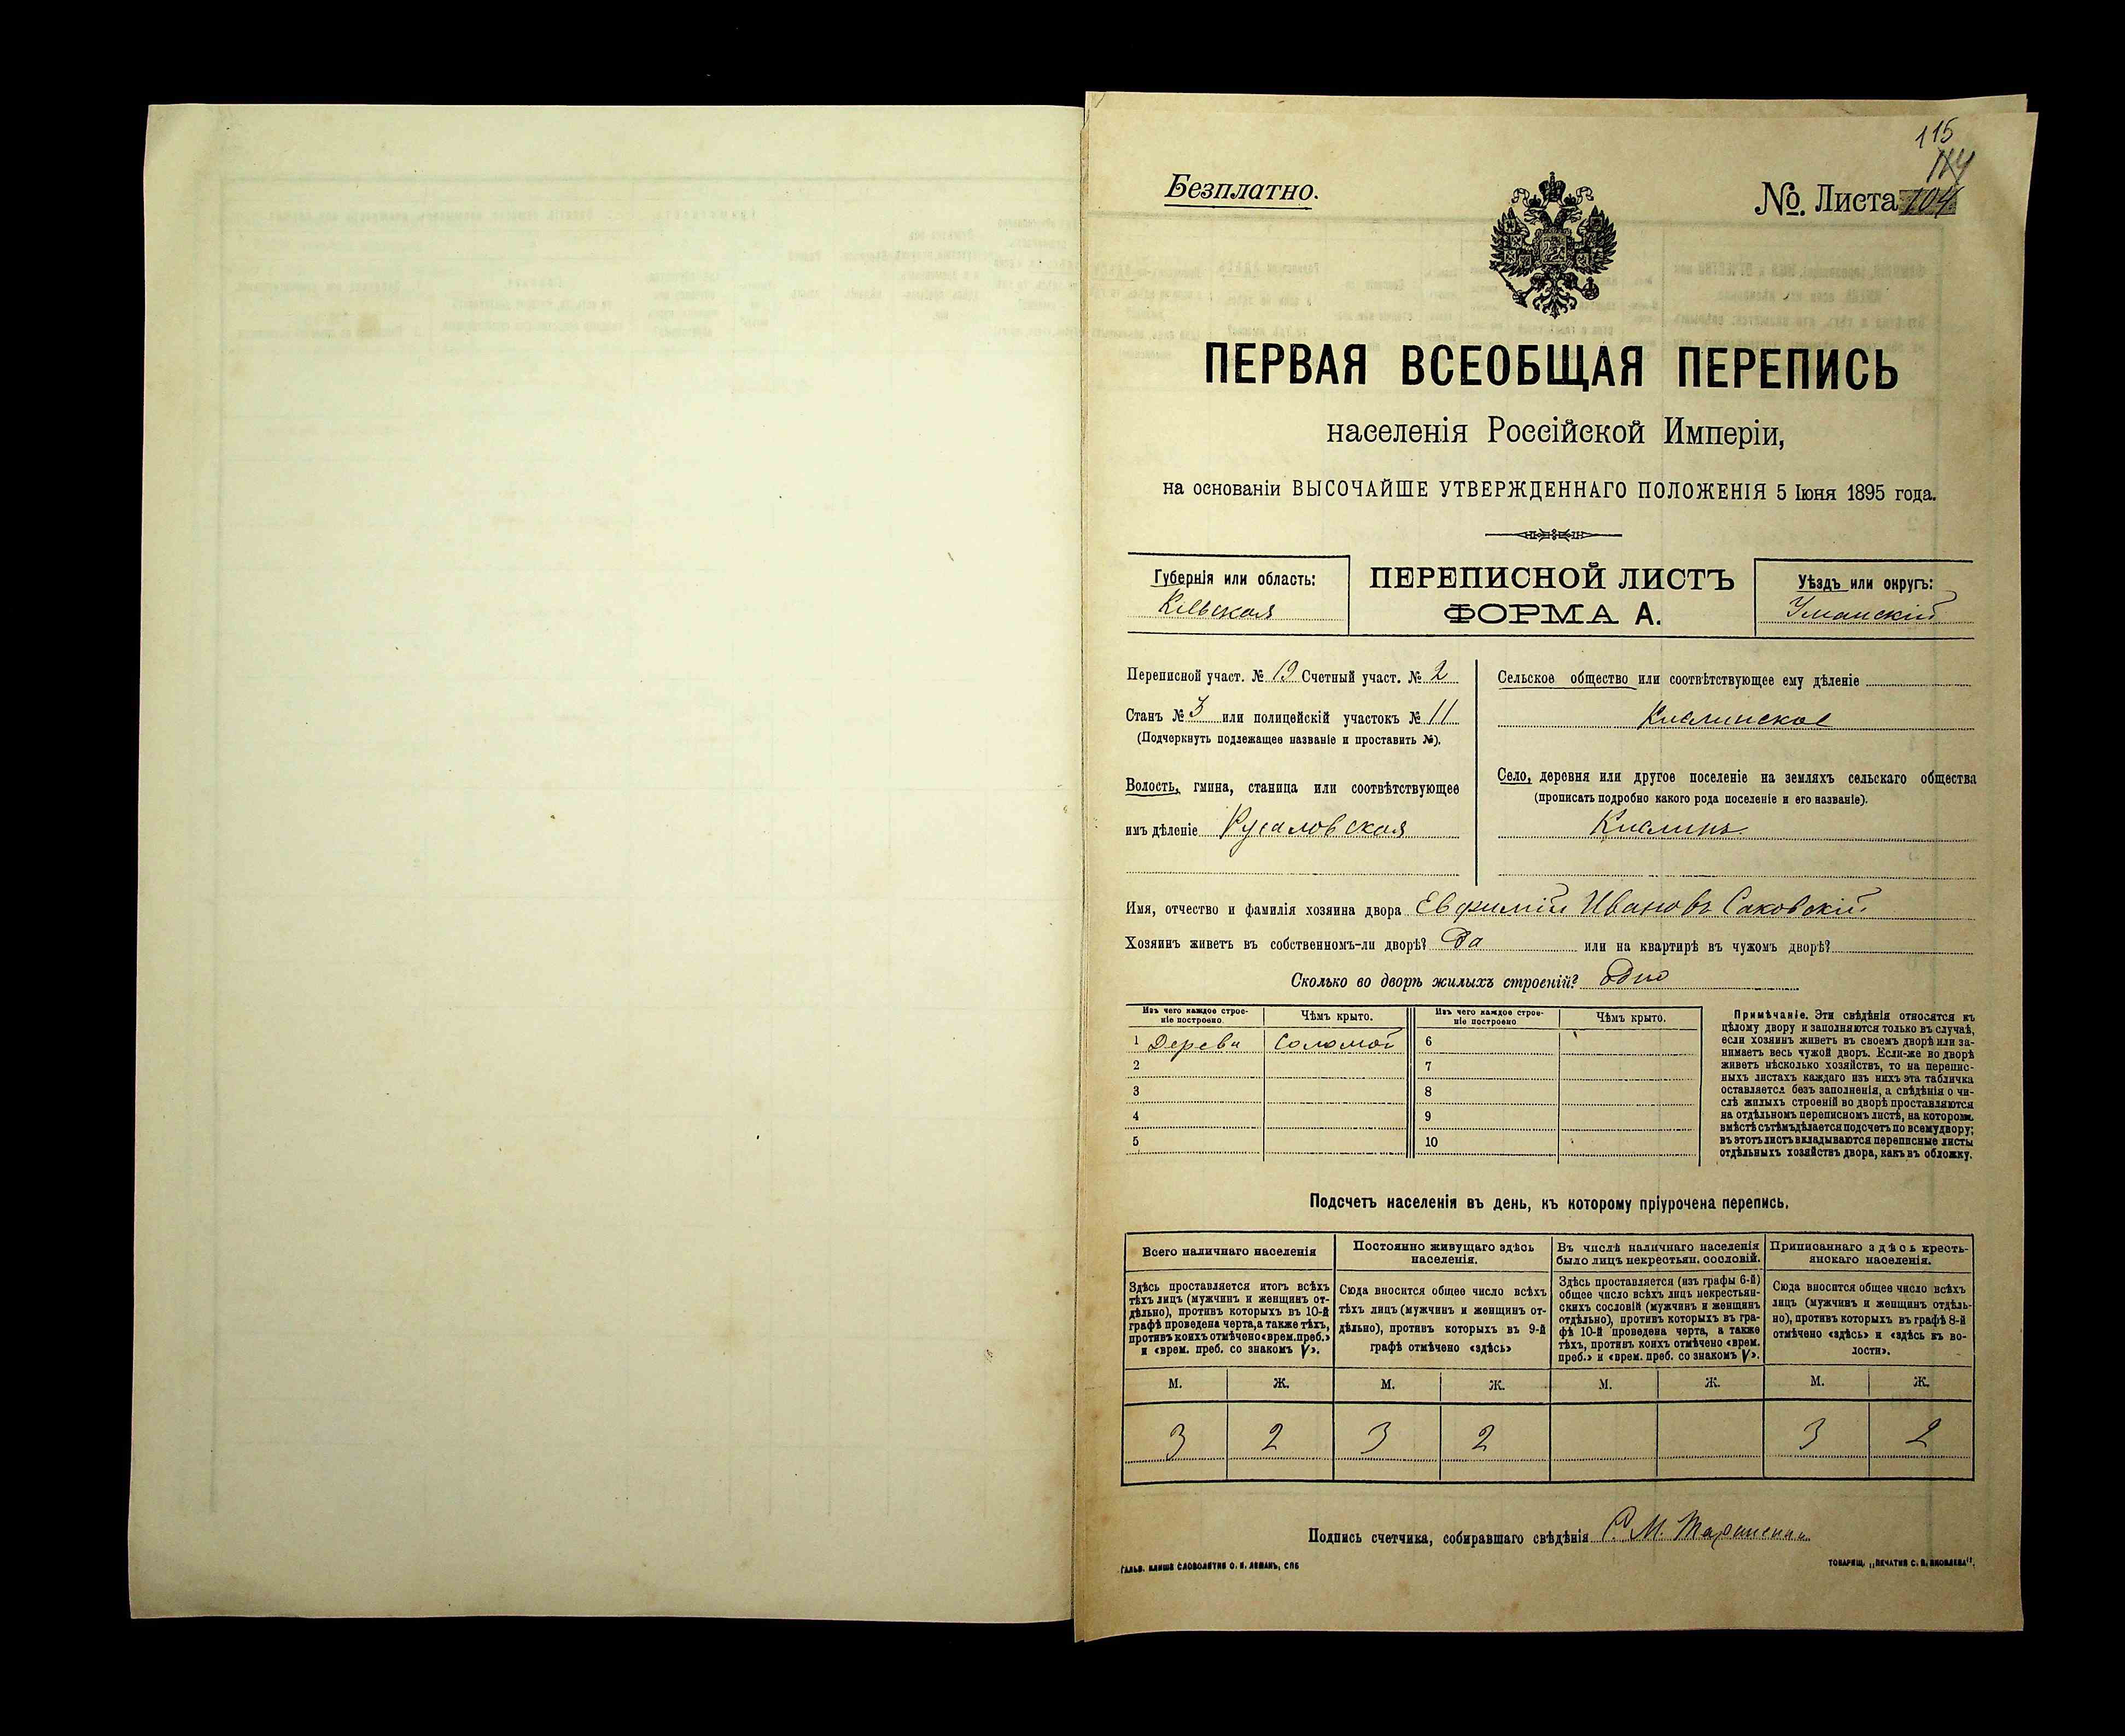 115
114
Безплатно.
№. Листа 104
ПЕРВАЯ ВСЕОБЩАЯ ПЕРЕПИСЬ
населенія Россійской Имперіи,
на основаніи ВЫСОЧАЙШЕ УТВЕРЖДЕННАГО ПОЛОЖЕНІЯ 5 Іюня 1895 года.
Губернія или область:
Кіевская
ПЕРЕПИСНОЙ ЛИСТЪ
ФОРМА А.
Уѣздъ или округъ:
Уманскій
Переписной участ. № 19 Счетный участ. № 2
Станъ № 3 или полицейскій участокъ № 11
(Подчеркнуть подлежащее названіе и проставить №).
Волость, гмина, станица или соотвѣтствующее
имъ дѣленіе Русаловская
Сельское общество или соотвѣтствующее ему дѣленіе
Кислинское
Село, деревня или другое поселеніе на земляхъ сельскаго общества
(прописать подробно какого рода поселеніе и его названіе).
Кислинъ
Имя, отчество и фамилія хозяина двора Евфимій Ивановъ Саковскій
Хозяинъ живетъ въ собственномъ-ли дворѣ? Да или на квартирѣ въ чужомъ дворѣ?
Сколько во дворѣ жилыхъ строеній? одно
Изъ чего каждое строе-
ніе построено.
Чѣмъ крыто.
Изъ чего каждое строе-
ніе построено
Чѣмъ крыто.
1 Дерева Соломой 6
2 7
3 8
4 9
5 10
Примѣчаніе. Эти свѣдѣнія относятся къ
цѣлому двору и заполняются только въ случаѣ,
если хозяинъ живетъ въ своемъ дворѣ или за-
нимаетъ весь чужой дворъ. Если-же во дворѣ
живетъ нѣсколько хозяйствъ, то на перепис-
ныхъ листахъ каждаго изъ нихъ эта табличка
оставляется безъ заполненія, а свѣдѣнія о чи-
слѣ жилыхъ строеній во дворѣ проставляются
на отдѣльномъ переписномъ листѣ, на которомъ
вмѣстѣ съ тѣмъ дѣлается подсчетъ по всему двору;
въ этотъ листъ вкладываются переписные листы
отдѣльныхъ хозяйствъ двора, какъ въ обложку.
Подсчетъ населенія въ день, къ которому пріурочена перепись.
Всего наличнаго населенія
Здѣсь проставляется итогъ всѣхъ
тѣхъ лицъ (мужчинъ и женщинъ от-
дѣльно), противъ которыхъ въ 10-й
графѣ проведена черта, а также тѣхъ,
противъ коихъ отмѣчено «врем. преб.»
и «врем. преб. со знакомъ V».
Постоянно живущаго здѣсь
населенія.
Сюда вносится общее число всѣхъ
тѣхъ лицъ (мужчинъ и женщинъ от-
дѣльно), противъ которыхъ въ 9-й
графѣ отмѣчено «здѣсь»
Въ числѣ наличнаго населенія
было лицъ некрестьян. сословій.
Здѣсь проставляется (изъ графы 6-й)
общее число всѣхъ лицъ некрестьян-
скихъ сословій (мужчинъ и женщинъ
отдѣльно), противъ которыхъ въ гра-
фѣ 10-й проведена черта, а также
тѣхъ, противъ коихъ отмѣчено «врем.
преб.» и «врем. преб. со знакомъ V».
Приписаннаго здѣсь кресть-
янскаго населенія.
Сюда вносится общее число всѣхъ
лицъ (мужчинъ и женщинъ отдѣль-
но), противъ которыхъ въ графѣ 8-й
отмѣчено «здѣсь» и «здѣсь въ во-
лости».
М. Ж. М. Ж. М. Ж. М. Ж.
3 2 3 2 3 2
Подпись счетчика, собиравшаго свѣдѣнія С. М.
ГАЛЬВ. КЛИШЕ СЛОВОЛИТНИ О. И. ЛЕМАНЪ, СПБ
ТОВАРИЩ. „ПЕЧАТНЯ С. П. ЯКОВЛЕВА".